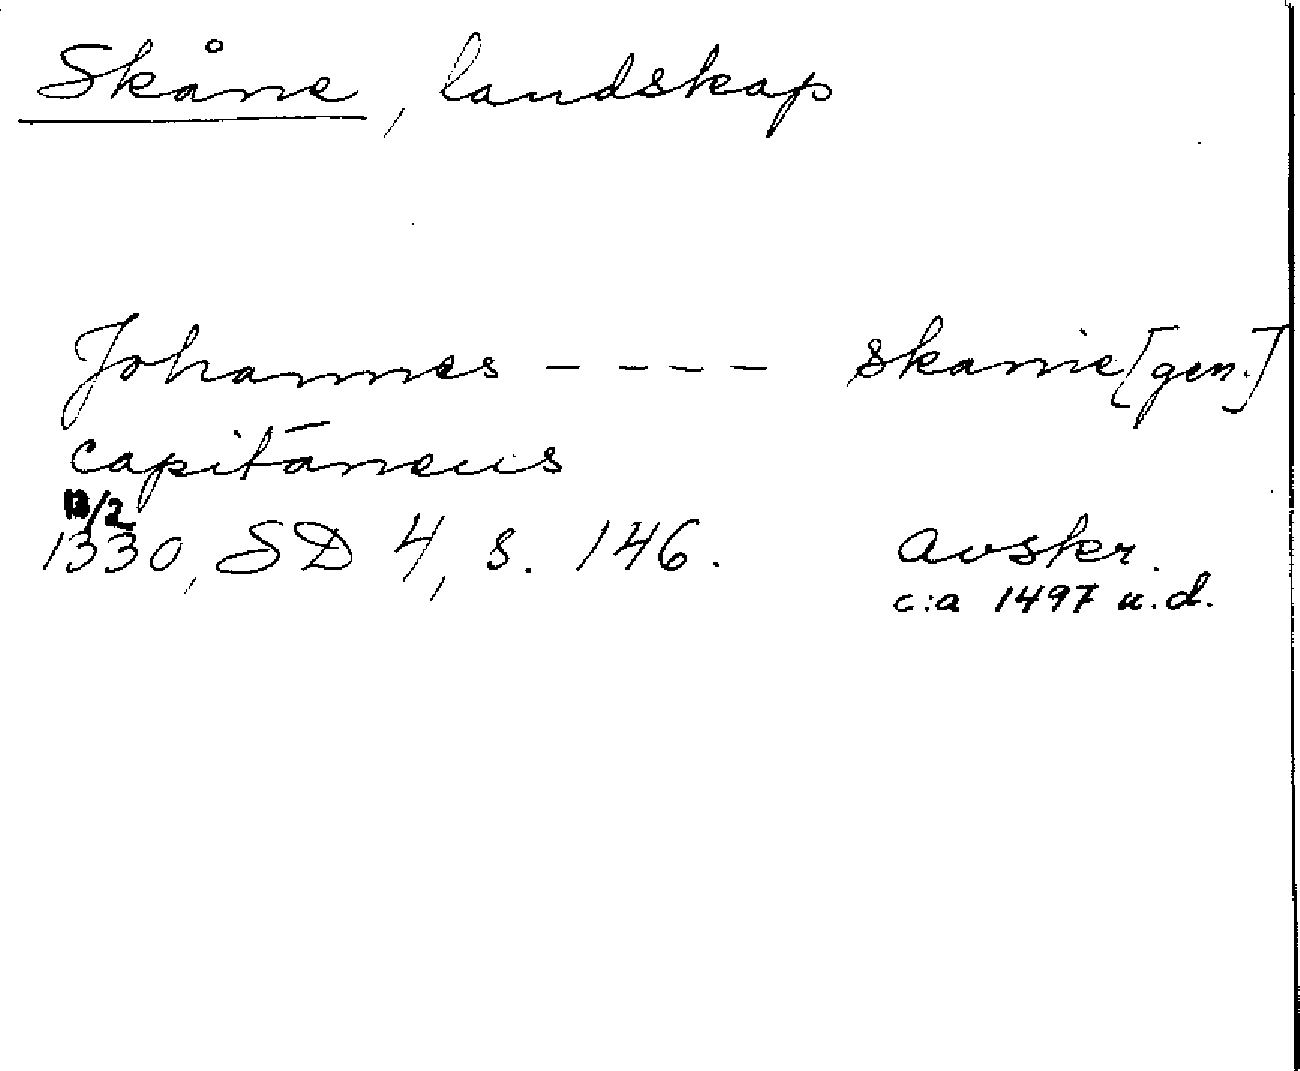 Skåne, landskap
Johannes ---- skanie [gen.]
capitāneus
/2
1330, SD 4, s. 146. Avskr.
c:a 1497 u.d.